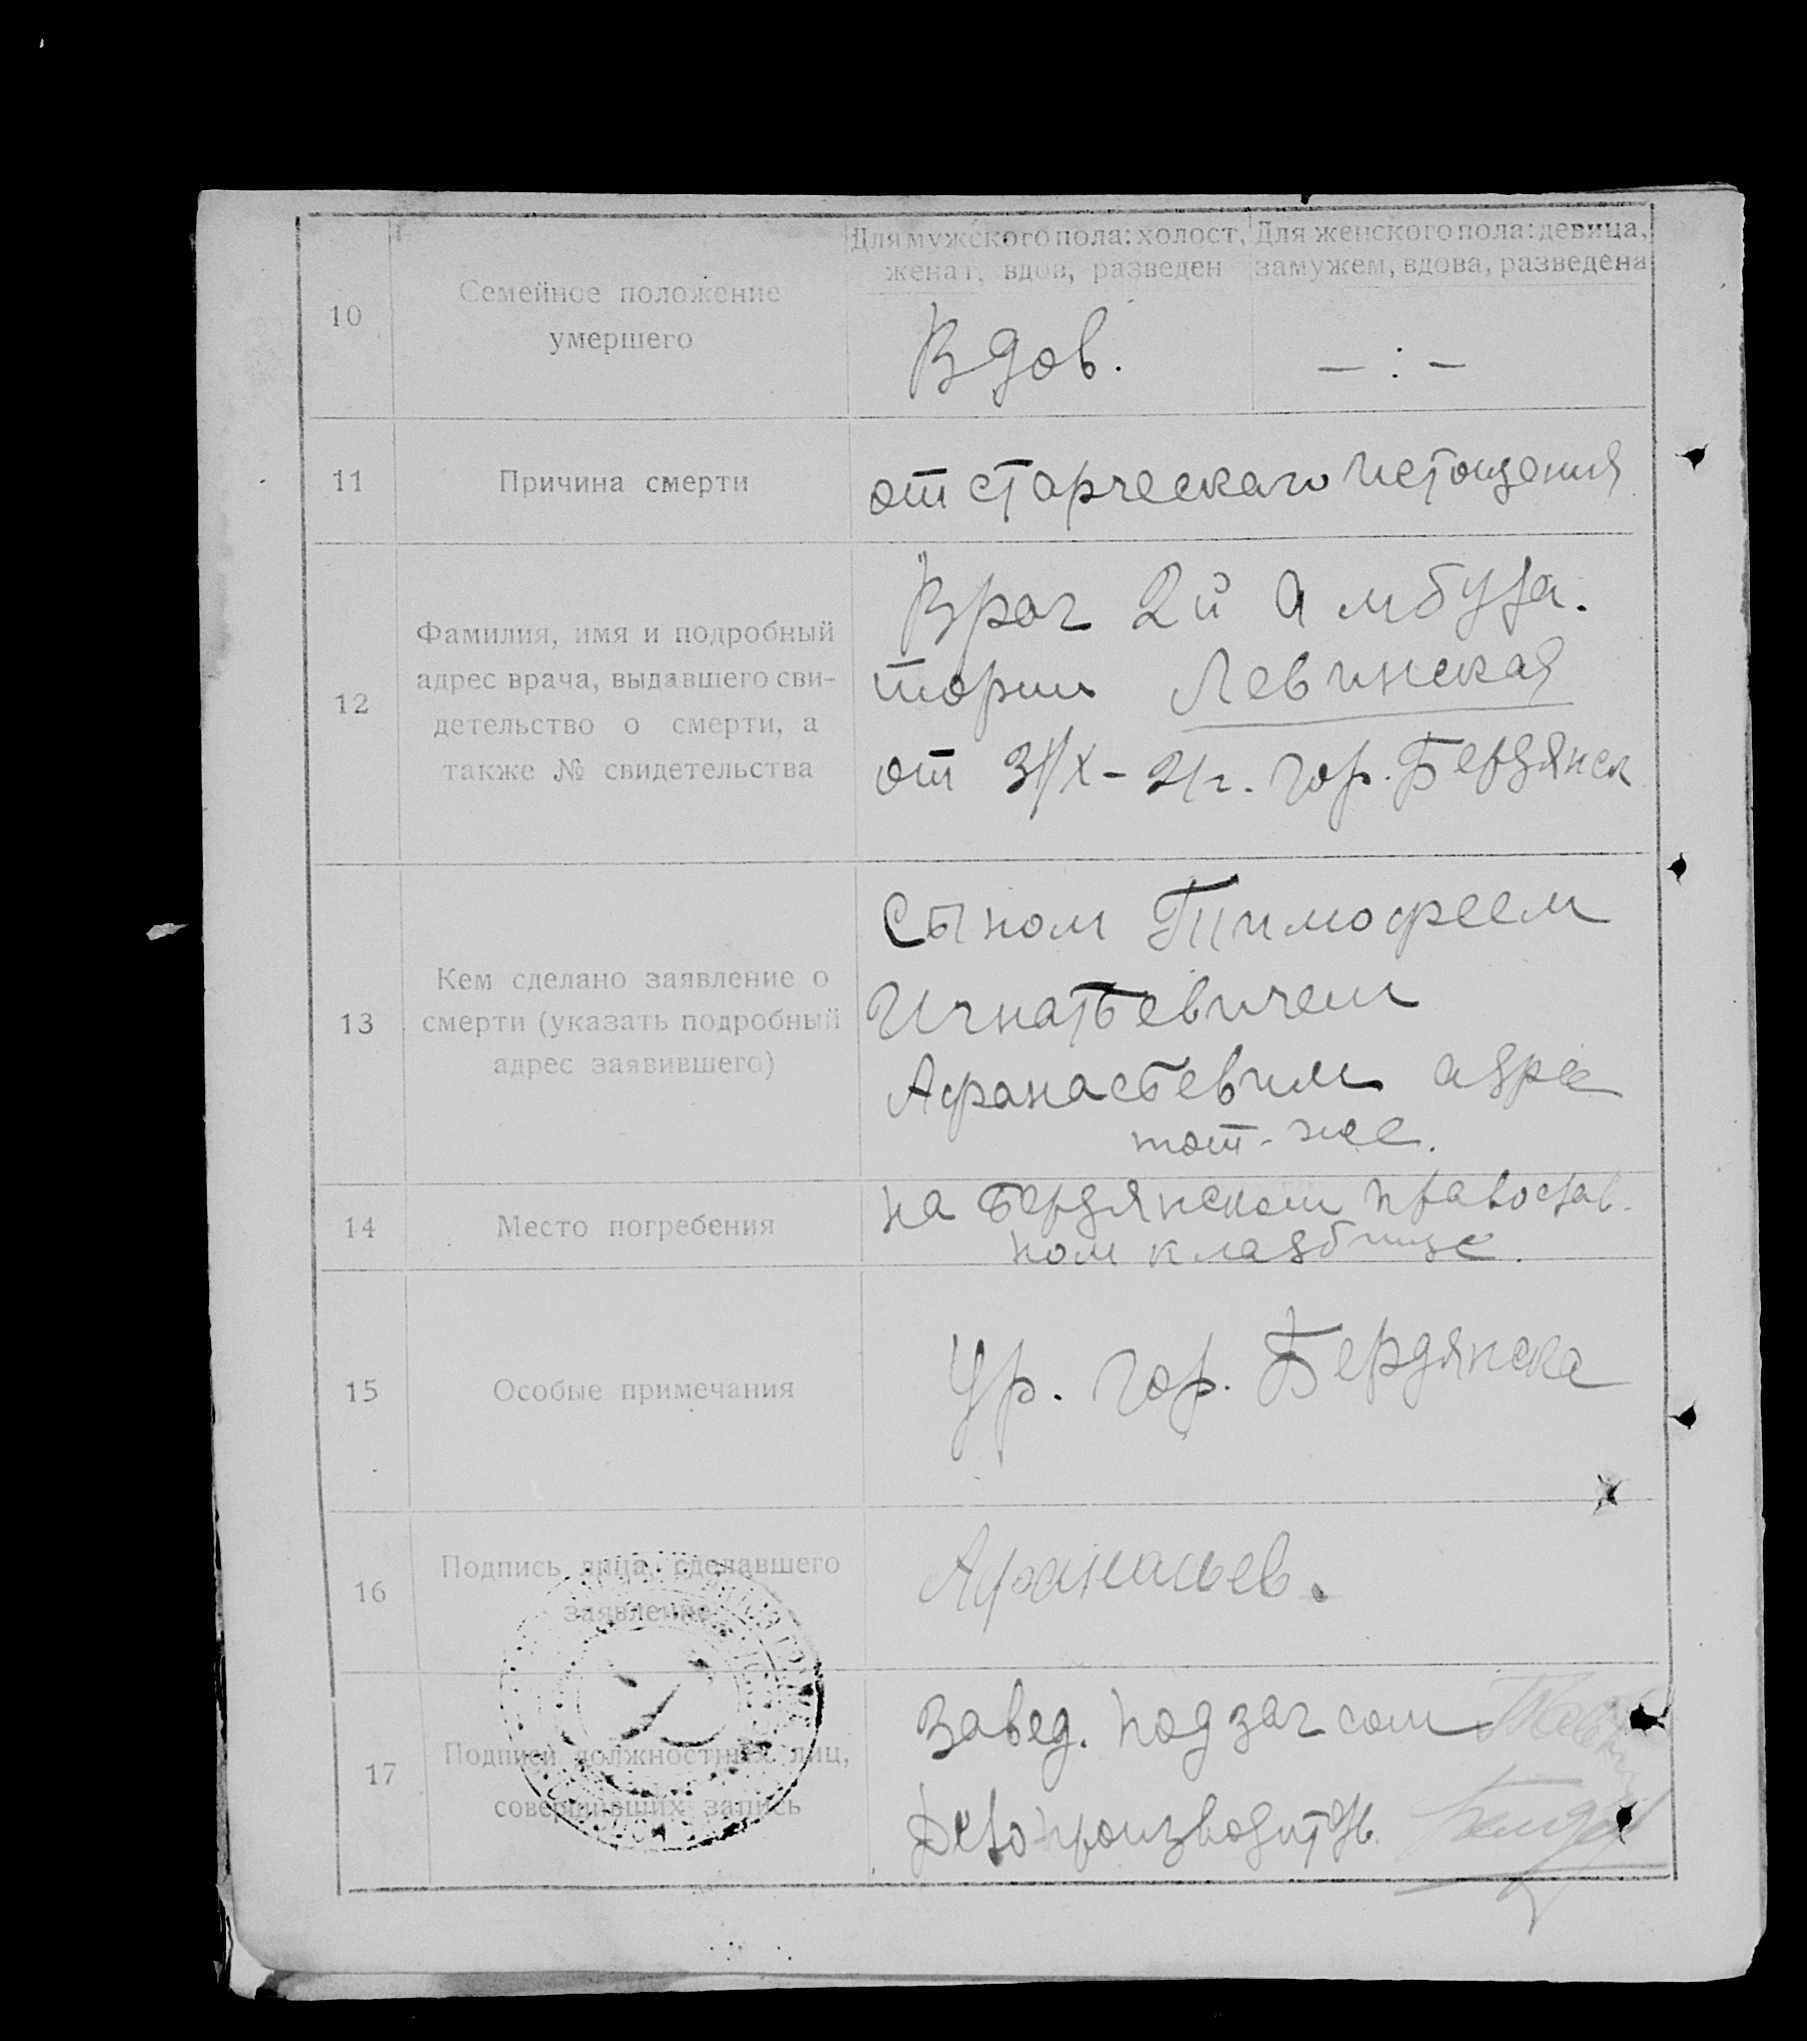 Для мужского пола: холост, женат, вдов, разведен
Для женского пола: девица, замужем, вдова, разведена
10
Семейное положение
умершего
Вдов.
— : —
11
Причина смерти
от старческаго истощения
12
Фамилия, имя и подробный
адрес врача, выдавшего сви-
детельство о смерти, а
также № свидетельства
Врач 2й Амбула.
тории Левинская
от 3/X - 21г. гор. Бердянск
13
Кем сделано заявление о
смерти (указать подробный
адрес заявившего)
Сыном Тимофеем
Игнатьевичем
Афанасьевим адрес
тот-же.
14
Место погребения
на Бердянском православ-
ном кладбище.
15
Особые примечания
Ур. гор. Бердянска
16
Подпись лица, сделавшего
заявление
Афанасьев.
17
Подписи должностных лиц,
совершивших запись
Завед. подзагсом
Делопроизводитель